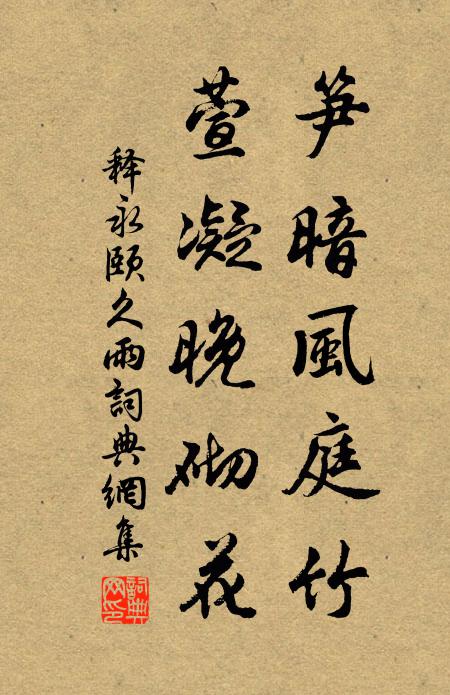 笋暗風庭竹
萱凝晚砌花
释永颐久雨詞典網集
詞典网印